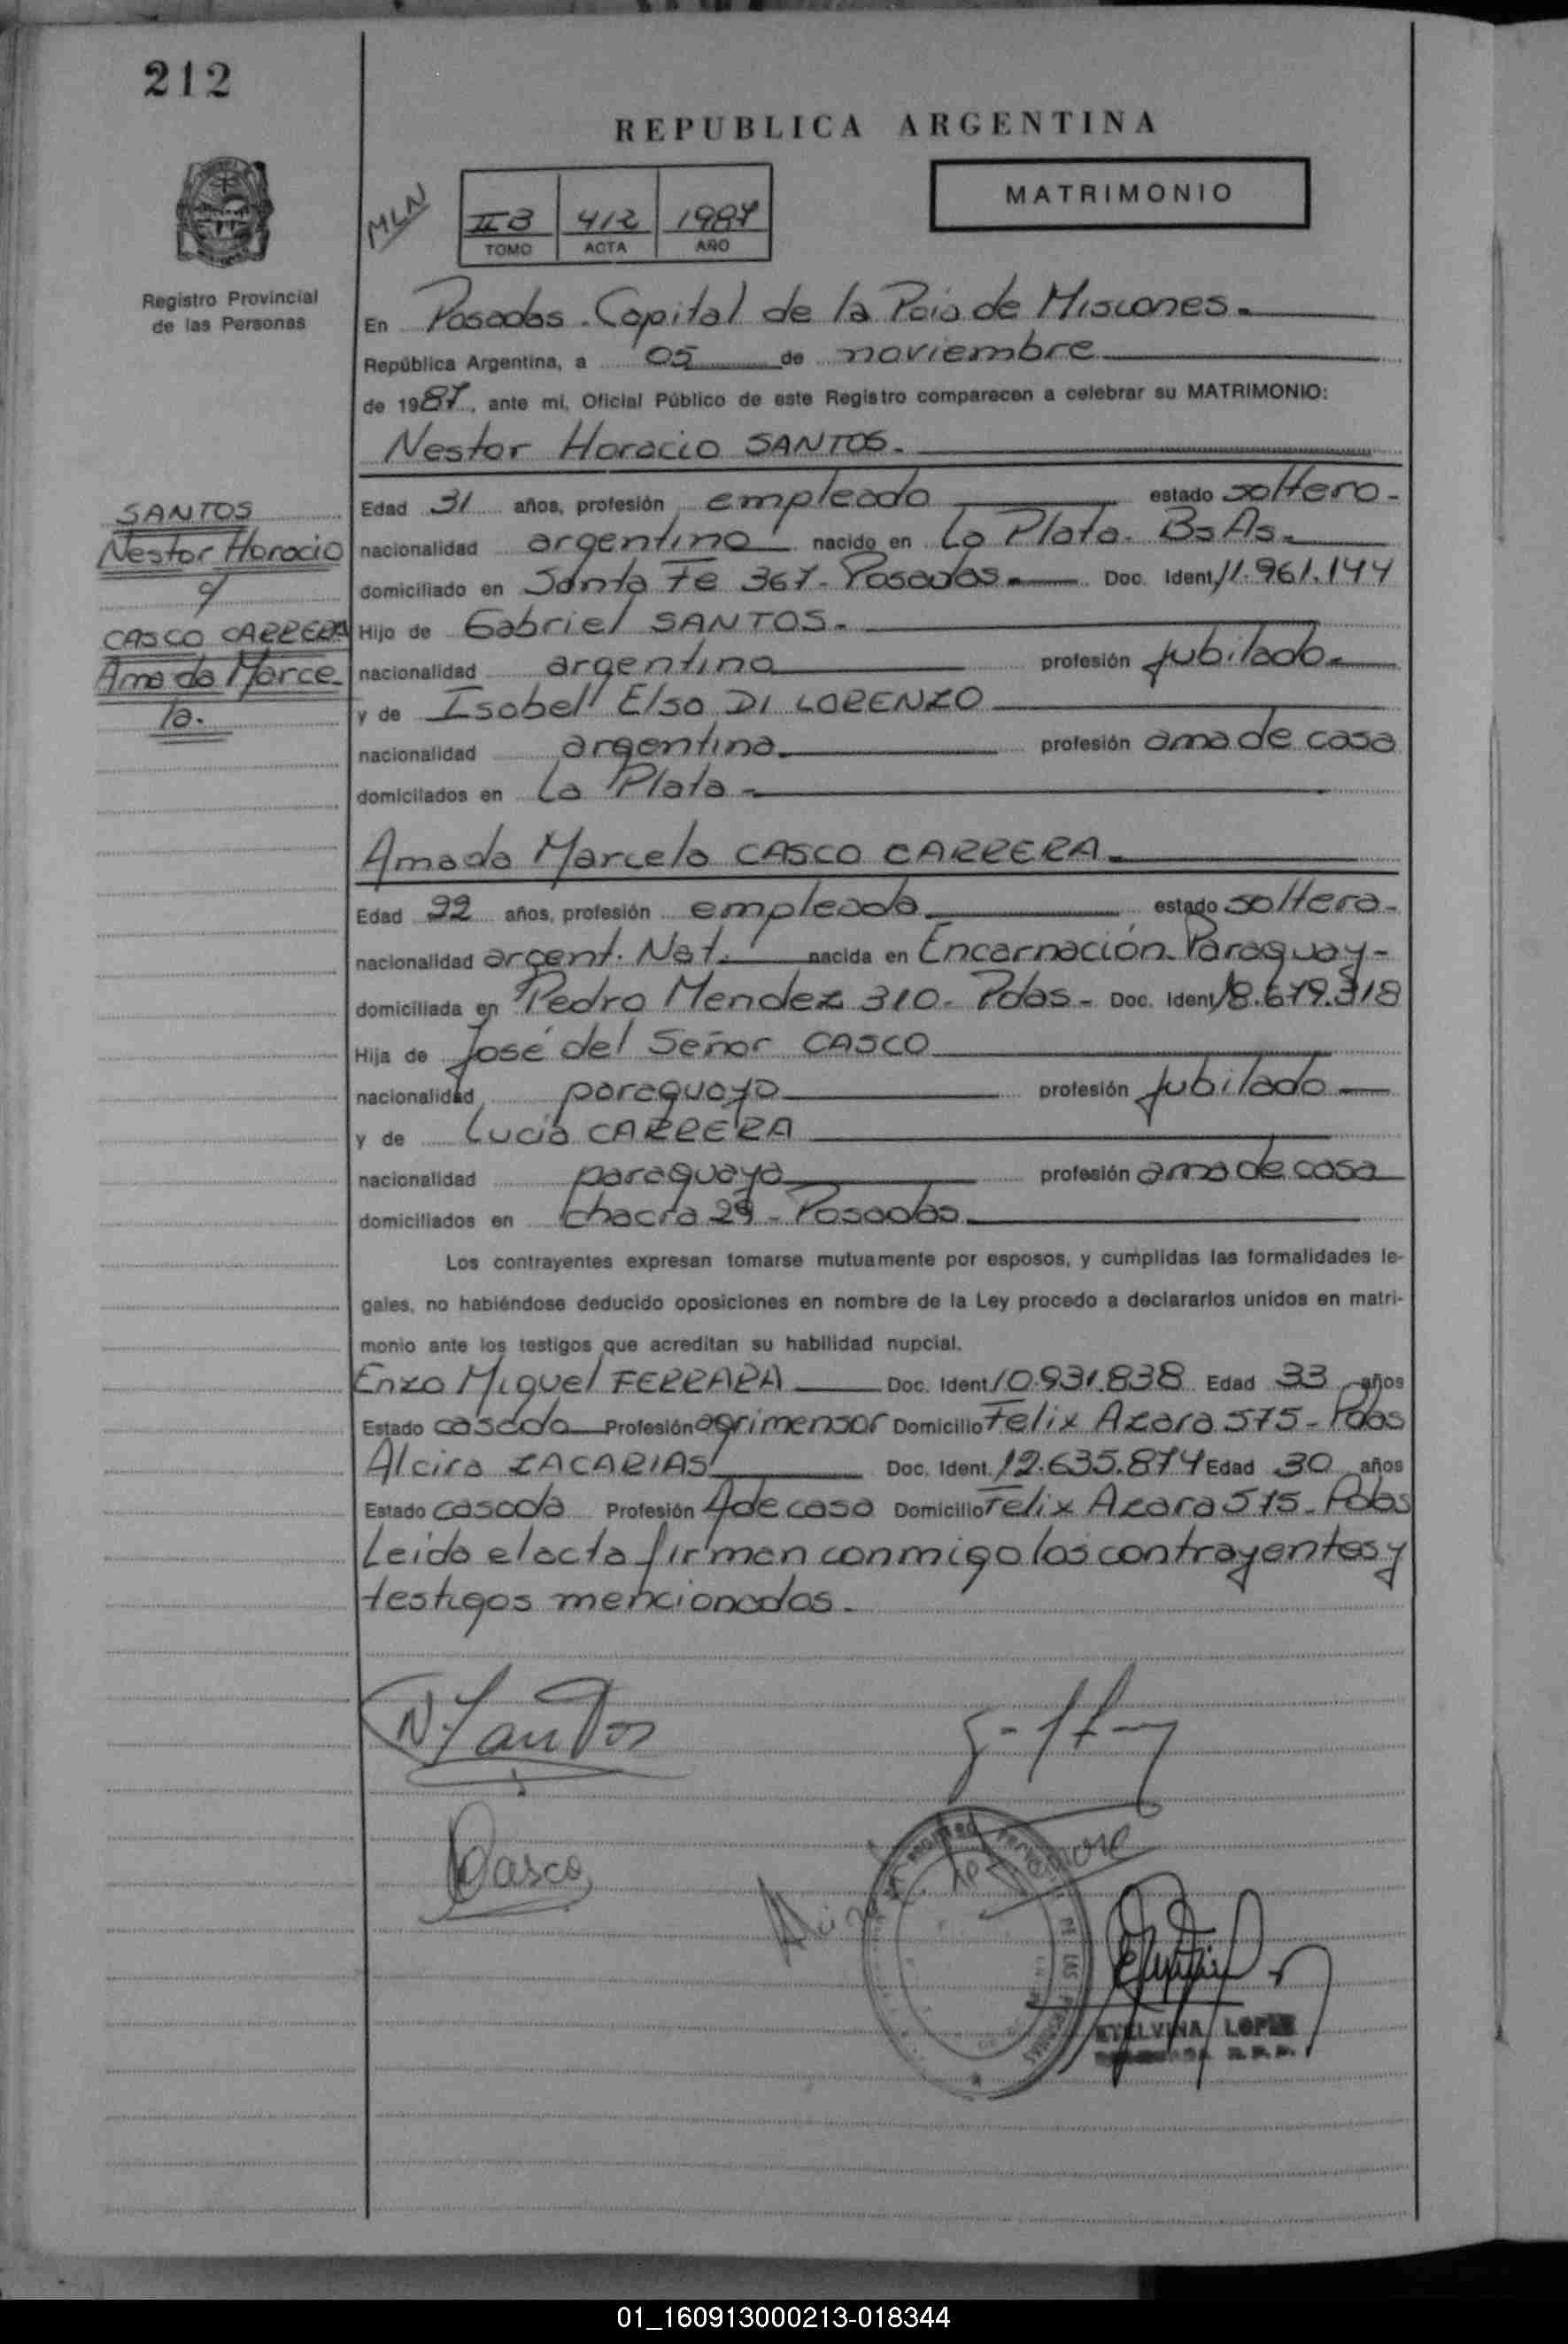 212
REPUBLICA ARGENTINA
MATRIMONIO
MLN
II B 412 1987
TOMO ACTA AÑO
Registro Provincial
de las Personas
En Posadas. Capital de la Pcia de Misiones.
República Argentina, a 05 de noviembre
de 1987, ante mi, Oficial Público de este Registro comparecen a celebrar su MATRIMONIO:
Nestor Horacio SANTOS.
SANTOS
Nestor Horacio
y
CASCO CARRERA
Amada Marce
la.
Edad 31 años, profesión empleado estado soltero-
nacionalidad argentino nacido en La Plata. Bs As.
domiciliado en Santa Fe 367- Posadas. Doc. Ident. 11.961.144
Hijo de Gabriel SANTOS.
nacionalidad argentino profesión jubilado.
y de Isabel Elsa DI LORENZO
nacionalidad argentina. profesión ama de casa
domicilados en La Plata-
Amada Marcela CASCO CARRERA.
Edad 22 años, profesión empleada. estado soltera-
nacionalidad argent. Nat. nacida en Encarnación. Paraguay-
domiciliada en Pedro Mendez 310- Pdas- Doc. Ident. 18.679.318
Hija de José del Señor CASCO
nacionalidad paraguayo profesión jubilado
y de Lucia CARRERA
nacionalidad paraguaya profesión ama de casa
domiciliados en chacra 29 - Posadas.
Los contrayentes expresan tomarse mutuamente por esposos, y cumplidas las formalidades le-
gales, no habiéndose deducido oposiciones en nombre de la Ley procedo a declararlos unidos en matri-
monio ante los testigos que acreditan su habilidad nupcial.
Enzo Miguel FERRARA Doc. Ident. 10.931.838 Edad 33 años
Estado casado Profesión agrimensor Domicilio Felix Azara 575- Pdas
Alcira ZACARIAS Doc. Ident. 12.635.874 Edad 30 años
Estado casada Profesión A de casa Domicilio Felix Azara 575- Pdas
Leida el acta firman conmigo los contrayentes y
testigos mencionados.
N. Santos
Casco
DE LAS PERSONAS
ETELVINA LOPEZ
01_160913000213-018344